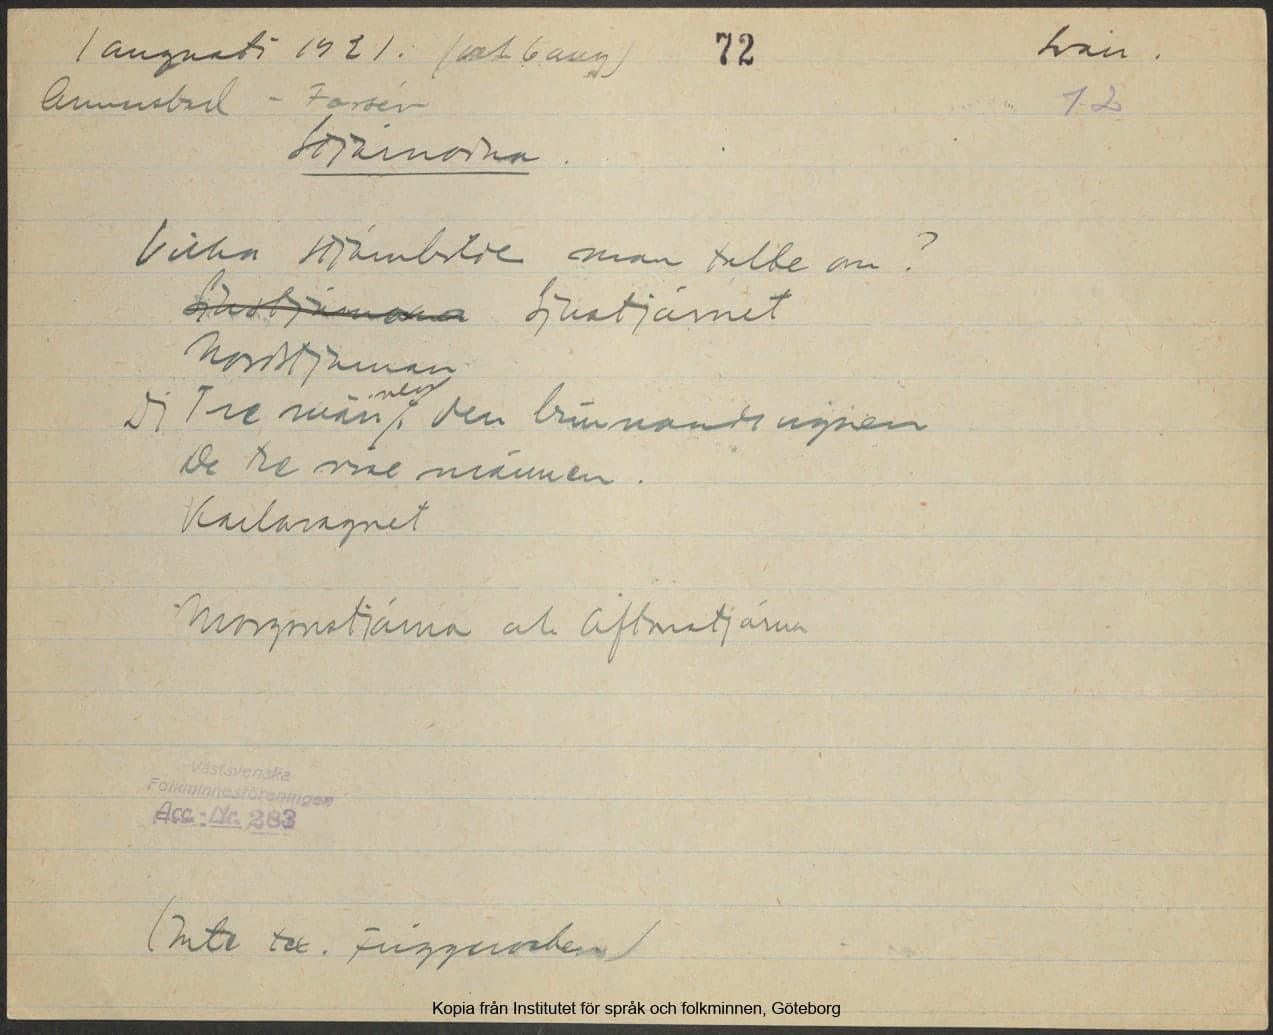 1 augusti 1921. (och 6 aug) 72
12
Annerstad - Forsén
Stjärnorna.
Vilka stjärnbilde man talte om?
Sjustjärnorna Sjustjärnet
Nordstjärnan
Di Tre männen i den brinnande ugnen
De tre vise männen.
Karlavagnet
Morgonstjärna och Aftonstjärna
Västsvenska
Folkminnesföreningen
Acc.-Nr. 283
(Inte tex. Friggerocken)
Kopia från Institutet för språk och folkminnen, Göteborg